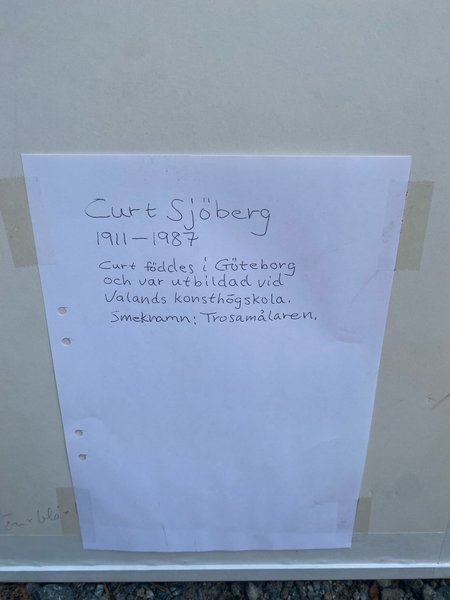 Curt Sjöberg
1911–1987
Curt föddes i Göteborg
och var utbildad vid
Valands konsthögskola.
Smeknamn: Trosamålaren.